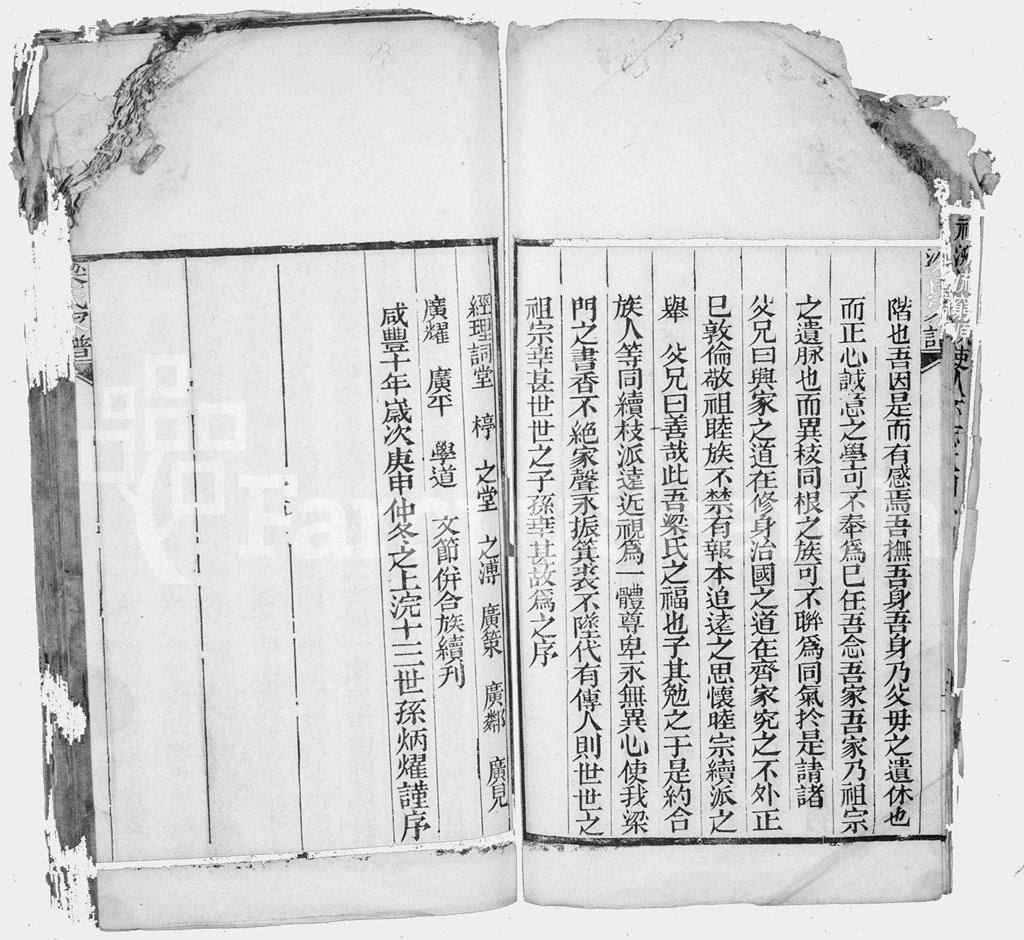 階也吾因是而有感焉吾撫吾身吾身乃父毋之遺休也
而正心誠意之學可不奉為已任吾念吾家吾家乃祖宗
之遺脉也而異枝同根之族可不聯為同氣扵是請諸
父兄曰興家之道在修身治國之道在齊家究之不外正
巳敦倫敬祖睦族不禁有報本追逺之思懷睦宗續派之
舉　父兄曰善哉此吾梁氏之福也子其勉之于是約合
族人等同續枝派遠近視為一體尊卑永無異心使我梁
門之書香不絶家聲永振箕裘不墜代有傳人則世世之
祖宗幸甚世世之子孫幸甚故為之序
經理詞堂　椁　之堂　之溥　廣策　廣鄰　廣見
廣耀　廣平　學道　文節併合族續刊
咸豐十年歲次庚申仲冬之上浣十三世孫炳燿謹序
梁氏 譜